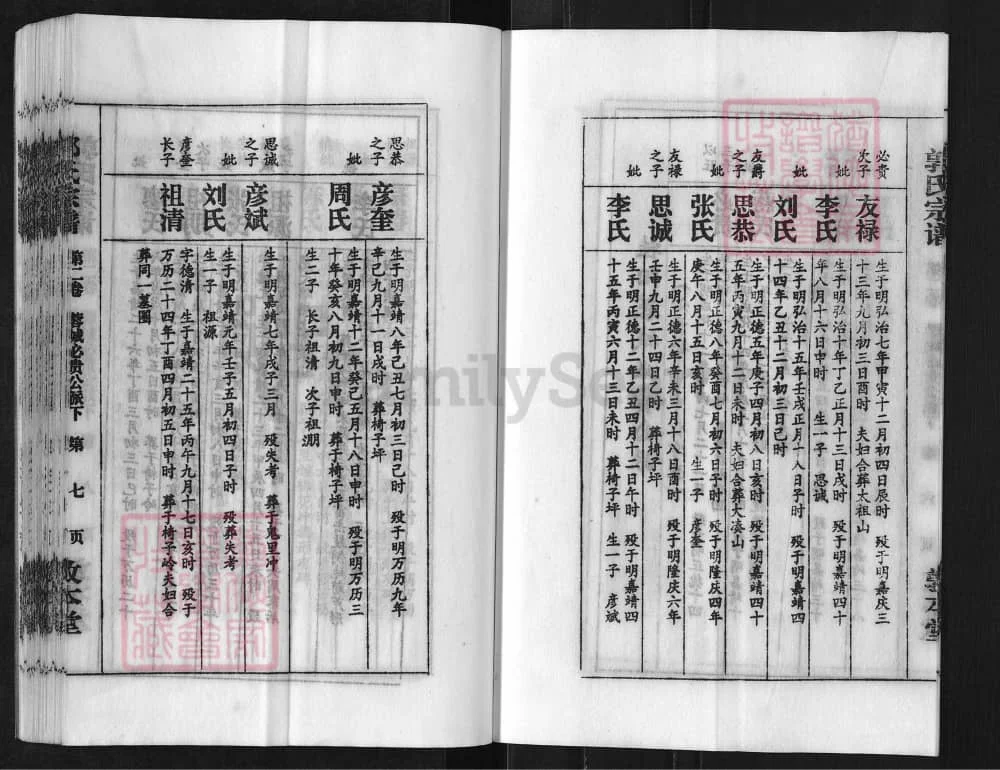 郭氏宗谱
敦本堂
必贵
次子
友禄
生于明弘治七年甲寅十二月初四日辰时 殁于明嘉庆三
十三年九月初三日酉时 夫妇合葬太祖山
妣
李氏
生于明弘治十年丁乙正月十三日戌时 殁于明嘉靖四十
年八月十六日申时 生一子 思诚
刘氏
生于明弘治十五年壬戌正月十八日子时 殁于明嘉靖四
十四年乙丑十二月初三日己时
友爵
之子
思恭
生于明正德五年庚子四月初八日亥时 殁于明嘉靖四十
五年丙寅九月十二日未时 夫妇合葬大凑山
妣
张氏
生于明正德八年癸酉七月初六日子时 殁于明隆庆四年
庚午八月十五日亥时 生一子 彦奎
友禄
之子
思诚
生于明正德六年辛未三月十八日酉时 殁于明隆庆六年
壬申九月二十四日乙时 葬椅子坪
妣
李氏
生于明正德十二年乙丑四月十二日午时 殁于嘉靖四
十五年丙寅六月十三日未时 葬椅子坪 生一子 彦斌
思恭
之子
彦奎
生于明嘉靖八年己丑七月初三日己时 殁于明万历九年
辛己九月十一日戌时 葬椅子坪
妣
周氏
生于明嘉靖十二年癸己五月十八日申时 殁于明万历三
十年癸亥八月初九日申时 葬于椅子坪
生二子 长子祖清 次子祖渊
思诚
之子
彦斌
生于明嘉靖七年戌子三月 殁失考 葬于鬼里冲
妣
刘氏
生于明嘉靖元年壬子五月初四日子时 殁葬失考
生一子 祖源
彦奎
长子
祖清
字德清 生于嘉靖二十五年丙午九月十七日亥时 殁于
万历二十四年丁酉四月初五日申时 葬于椅子岭夫妇合
葬同一墓圈
郭氏宗谱
第二卷
蓉城必贵公派下
第七页
敦本堂
FamilySe